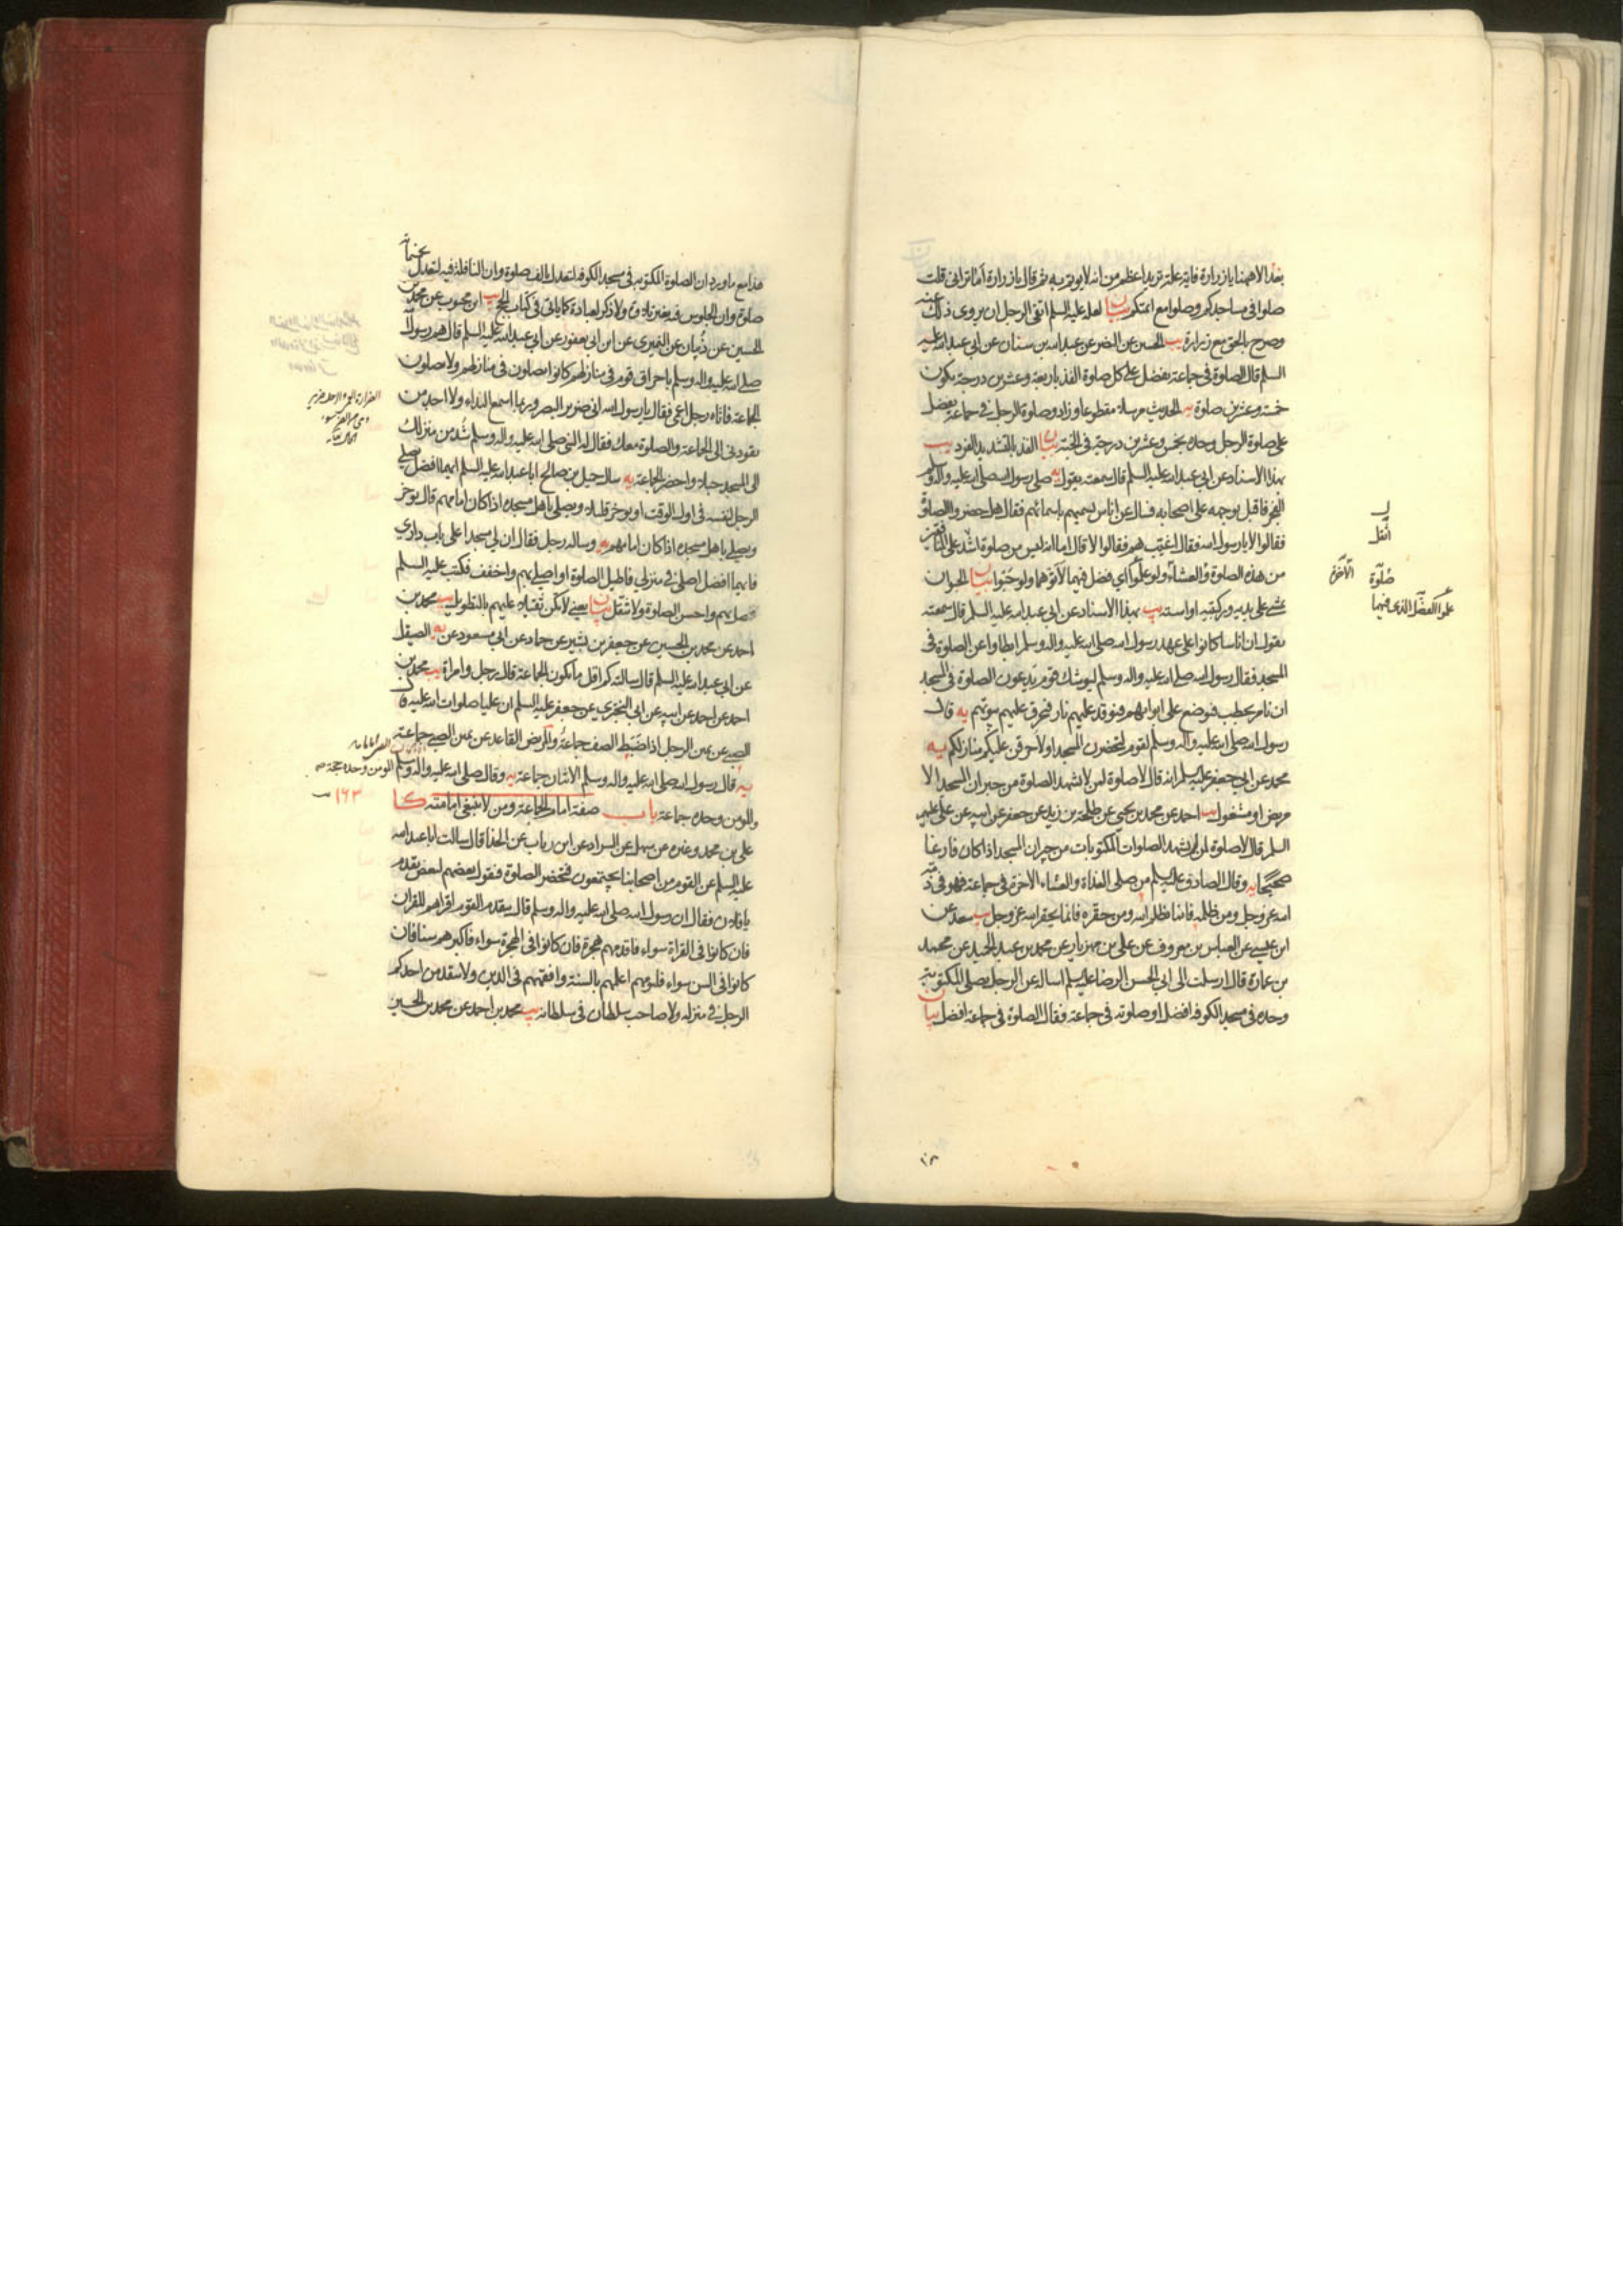 بعد الا ههنا يا زرارة فاية علة تريد اعظم من انه لا يؤتم به ثم قال يا زرارة اما تراني قلت
صلوا في مساجدكم وصلوا مع ائمتكم بيان لعله عليه السلم اتقى الرجل ان يروى ذلك عنه
وصرح بالحق مع زرارة يب الحسين عن النضر عن عبد الله بن سنان عن ابي عبد الله عليه
السلم قال الصلوة في جماعة تفضل على كل صلوة الفذ باربعة وعشرين درجة تكون
خمسة وعشرين صلوة يه الحديث مرسلا مقطوعا وزاد وصلوة الرجل في جماعة تفضل
على صلوة الرجل وحده بخمس وعشرين درجة في الجنة بيان الفذ بالتشديد الفرد يب
بهذا الاسناد عن ابي عبد الله عليه السلم قال سمعته يقول يه صلى رسول الله صلى الله عليه واله وسلم
الفجر فاقبل بوجهه على اصحابه فسال عن اناس يسميهم باسمائهم فقال هل حضروا الصلوة
فقالوا لا يا رسول الله فقال اغيب هم فقالوا لا قال اما انه ليس من صلوة اشد على المنافقين
من هذه الصلوة والعشاء ولو علموا اي فضل فيهما لاتوهما ولو حبوا بيان الحبو ان
يمشي على يديه وركبتيه او استه يب بهذا الاسناد عن ابي عبد الله عليه السلم قال سمعته
يقول ان اناسا كانوا على عهد رسول الله صلى الله عليه واله وسلم ابطاوا عن الصلوة في
المسجد فقال رسول الله صلى الله عليه واله وسلم ليوشك قوم يدعون الصلوة في المسجد
ان نامر بحطب فيوضع على ابوابهم فنوقد عليهم نار فتحرق عليهم بيوتهم يه قال
رسول الله صلى الله عليه واله وسلم لقوم لتحضرن المسجد او لاحرقن عليكم منازلكم يه
محمد عن ابي جعفر عليه السلم انه قال لا صلوة لمن لا يشهد الصلوة من جيران المسجد الا
مريض او مشغول يب احمد عن محمد بن يحيى عن طلحة بن زيد عن جعفر عن ابيه عن علي عليهم
السلم قال لا صلوة لمن لم يشهد الصلوات المكتوبات من جيران المسجد اذا كان فارغا
صحيحا يه وقال الصادق عليه السلم من صلى الغداة والعشاء الاخرة في جماعة فهو في ذمة
الله عز وجل ومن ظلمه فانما يظلم الله ومن حقره فانما يحقر الله عز وجل يب سعد عن
ابن عيسى عن العباس بن معروف عن علي بن مهزيار عن محمد بن عبد الحميد عن محمد
بن عمارة قال ارسلت الى ابي الحسن الرضا عليه السلم اساله عن الرجل يصلي المكتوبة
وحده في مسجد الكوفة افضل او صلوته في جماعة فقال الصلوة في جماعة افضل بيان
اثقل
صلوة
الآخرة
علموا الفضل الذي فيهما
هذا مع ما ورد ان الصلوة المكتوبة في مسجد الكوفة لتعدل بالف صلوة وان النافلة فيه لتعدل بخمسمائة
صلوة وان الجلوس فيه بغير تلاوة ولا ذكر لعبادة كما ياتي في كتاب الحج يب ابن محبوب عن محمد بن
الحسين عن ذبيان عن النميري عن ابن ابي يعفور عن ابي عبد الله عليه السلم قال هم رسول الله
صلى الله عليه واله وسلم باحراق قوم في منازلهم كانوا يصلون في منازلهم ولا يصلون
الجماعة فاتاه رجل اعمى فقال يا رسول الله اني ضرير البصر وربما اسمع النداء ولا اجد من
يقودني الى الجماعة والصلوة معك فقال له النبي صلى الله عليه واله وسلم شد من منزلك
الى المسجد حبلا واحضر الجماعة يه سال جميل بن صالح ابا عبد الله عليه السلم ايهما افضل يصلي
الرجل لنفسه في اول الوقت او يؤخر قليلا ويصلي باهل مسجده اذا كان امامهم قال يؤخر
ويصلي باهل مسجده اذا كان امامهم يه وساله رجل فقال ان لي مسجدا على باب داري
فايهما افضل اصلي في منزلي فاطيل الصلوة او اصلي بهم واخفف فكتب عليه السلم
صل بهم واحسن الصلوة ولا تثقل بيان يعني لا تكن ثقيلا عليهم بالتطويل يب محمد بن
احمد عن محمد بن الحسين عن جعفر بن بشير عن حماد عن ابي مسعود عن يه الصيقل
عن ابي عبد الله عليه السلم قال سالته كم اقل ما تكون الجماعة قال رجل وامراة يب محمد بن
احمد عن احمد عن ابيه عن ابي البختري عن جعفر عليه السلم ان عليا صلوات الله عليه قال
الصبي عن يمين الرجل اذا ضبط الصف جماعة والمريض القاعد عن يمين الصبي جماعة
يه قال رسول الله صلى الله عليه واله وسلم الاثنان جماعة يه وقال صلى الله عليه واله وسلم المؤمن وحده حجة
والمؤمن وحده جماعة باب صفة امام الجماعة ومن لا ينبغي امامته كا
علي بن محمد وغيره عن سهل عن السراد عن ابن رياب عن الحذا قال سالت ابا عبد الله
عليه السلم عن القوم من اصحابنا يجتمعون فتحضر الصلوة فيقول بعضهم لبعض تقدم
يا فلان فقال ان رسول الله صلى الله عليه واله وسلم قال يتقدم القوم اقراهم للقران
فان كانوا في القراة سواء فاقدمهم هجرة فان كانوا في الهجرة سواء فاكبرهم سنا فان
كانوا في السن سواء فليؤمهم اعلمهم بالسنة وافقههم في الدين ولا يتقدمن احدكم
الرجل في منزله ولا صاحب سلطان في سلطانه يب محمد بن احمد عن محمد بن الحسين
١٦٣